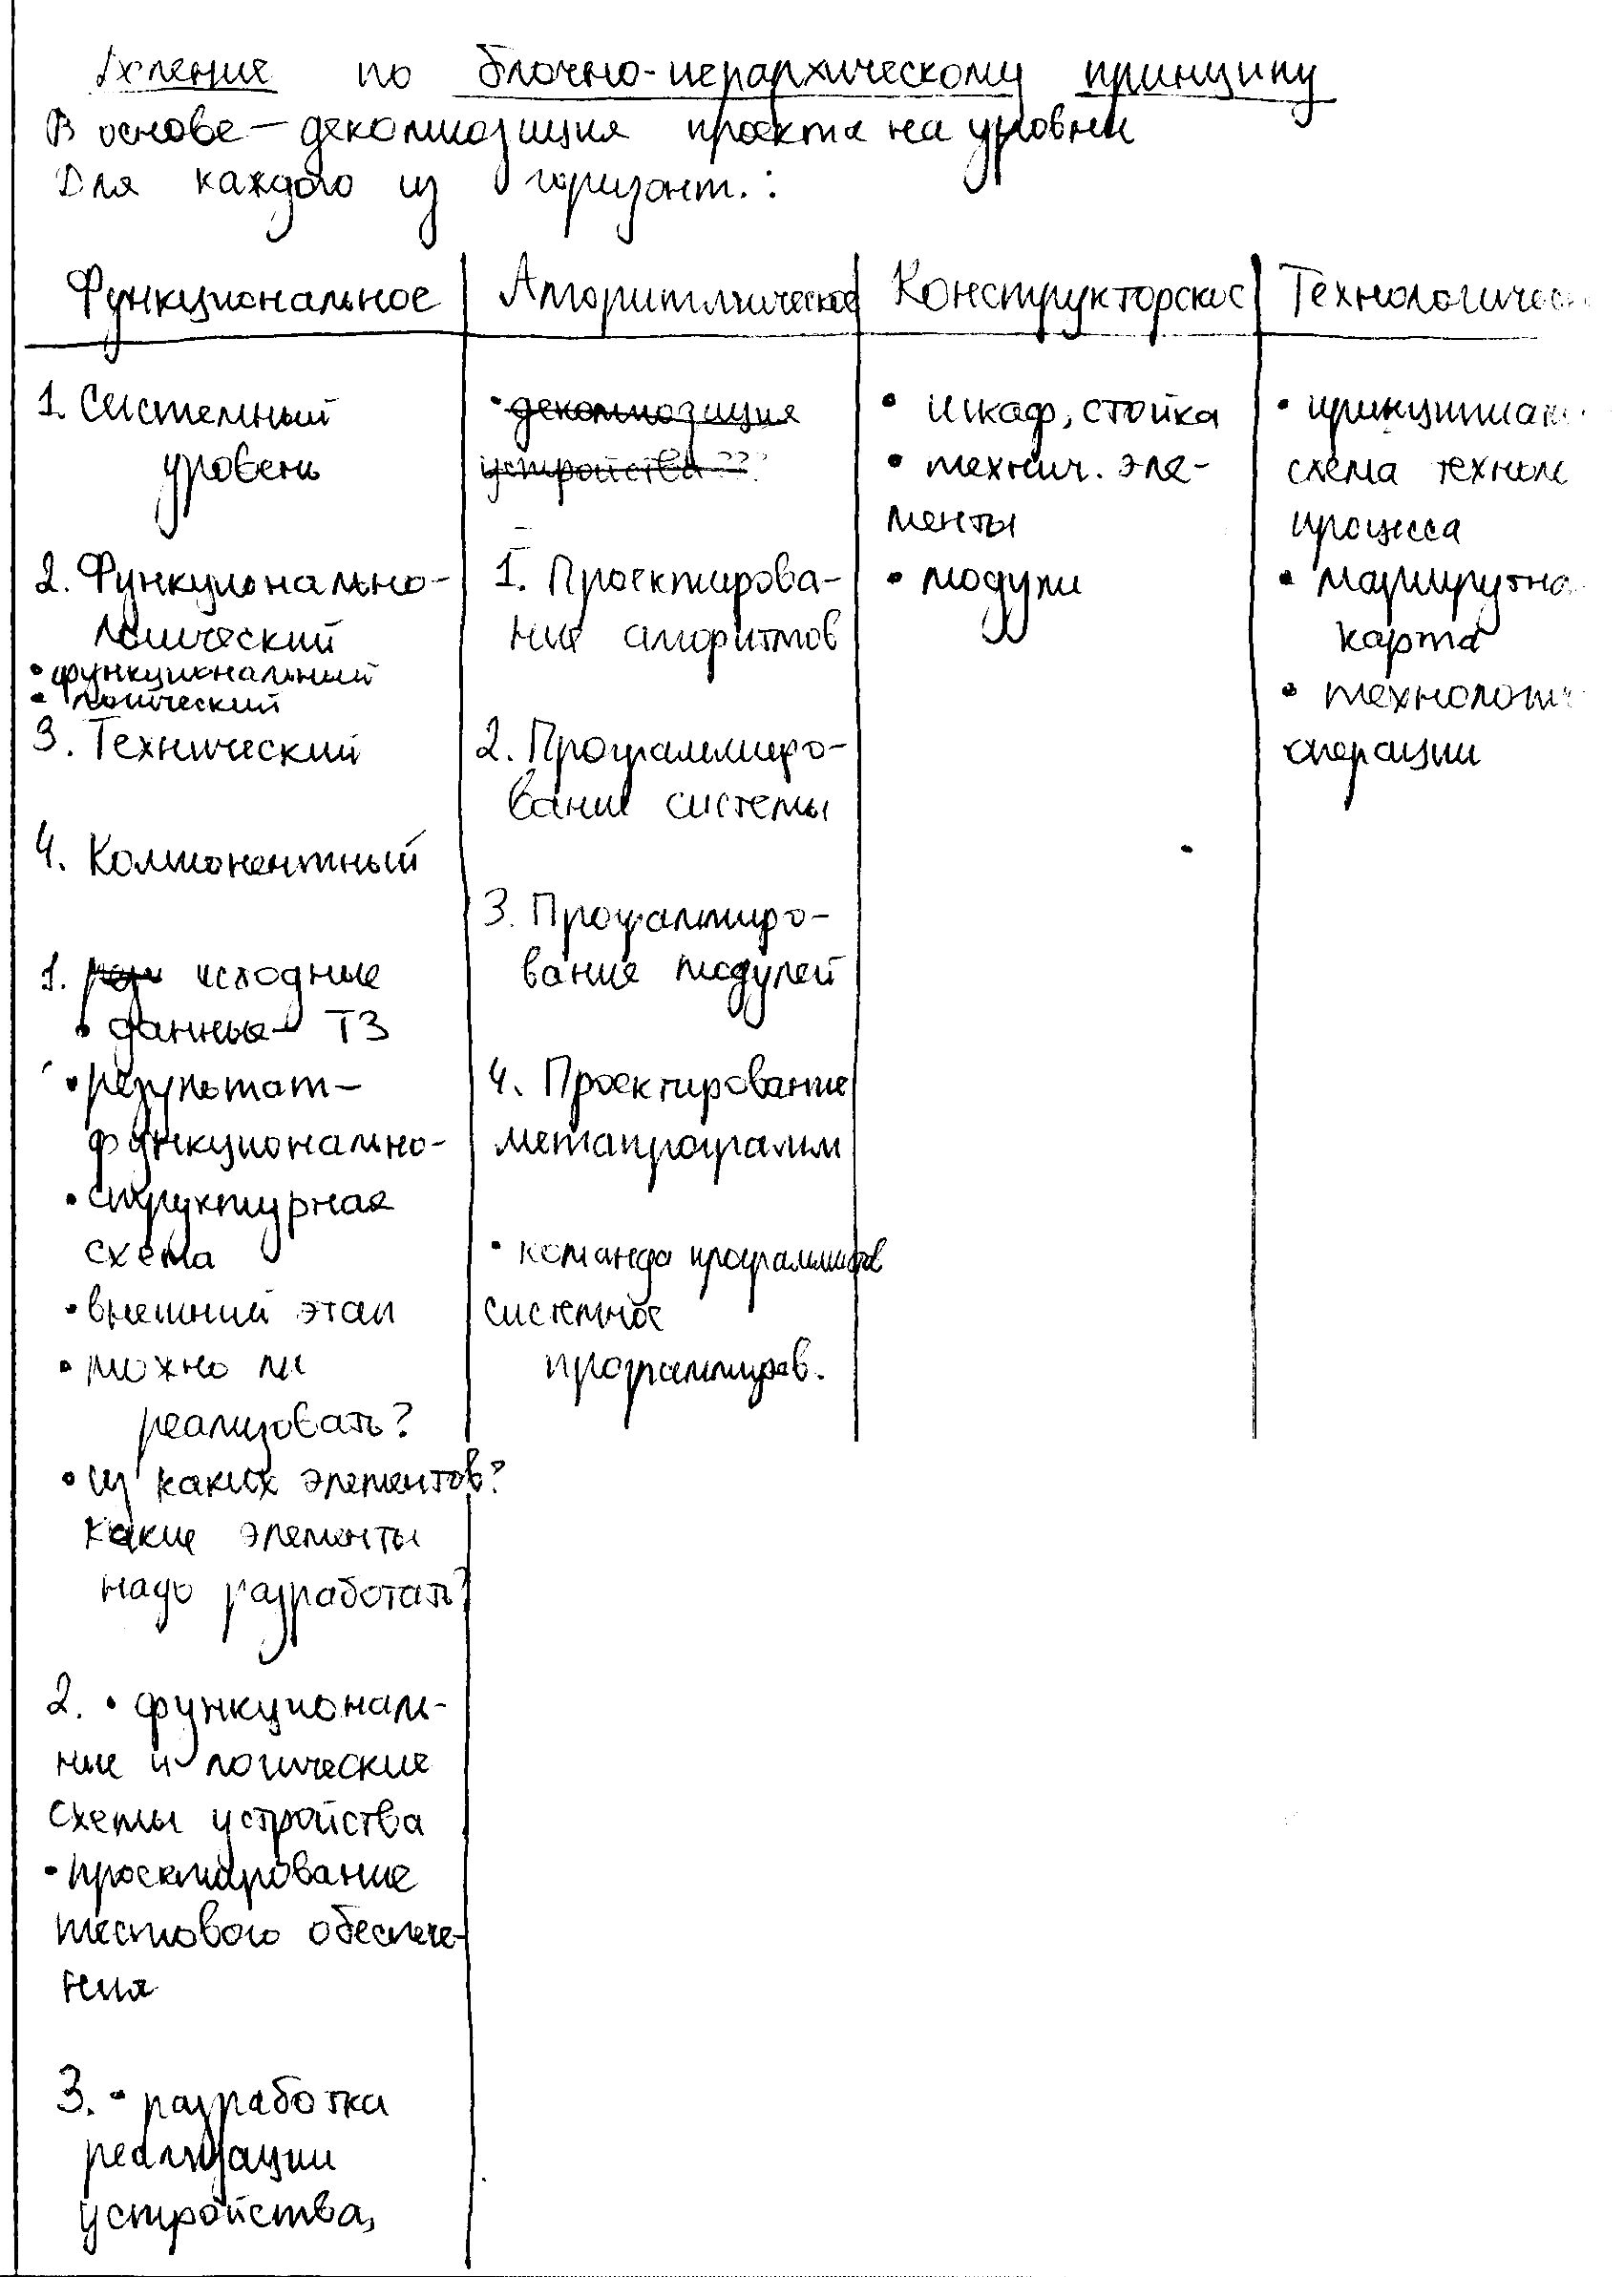 Деление по блочно-иерархическому принципу
В основе – декомпозиция проекта на уровни
Для каждого из горизонт.:
Функциональное
1. Системный
уровень
2. Функционально-
логический
• функциональный
• логический
3. Технический
4. Компонентный
1. исходные
• данные – ТЗ
• результат –
функционально-
• структурная
схема
• внешний этап
• можно ли
реализовать?
• из каких элементов?
какие элементы
надо разработать?
2. • функциональ-
ные и логические
схемы устройства
• проектирование
тестового обеспече-
ния
3. • разработка
реализации
устройства,
Алгоритмическое
• декомпозиция
устройства ???
1. Проектирова-
ние алгоритмов
2. Программиро-
вание системы
3. Программиро-
вание модулей
4. Проектирование
метапрограмм
• команда программистов
системное
программиров.
Конструкторское
• шкаф, стойка
• технич. эле-
менты
• модули
Технологическ
• принципиал
схема технол
процесса
• маршрутна
карта
• технологич
операции